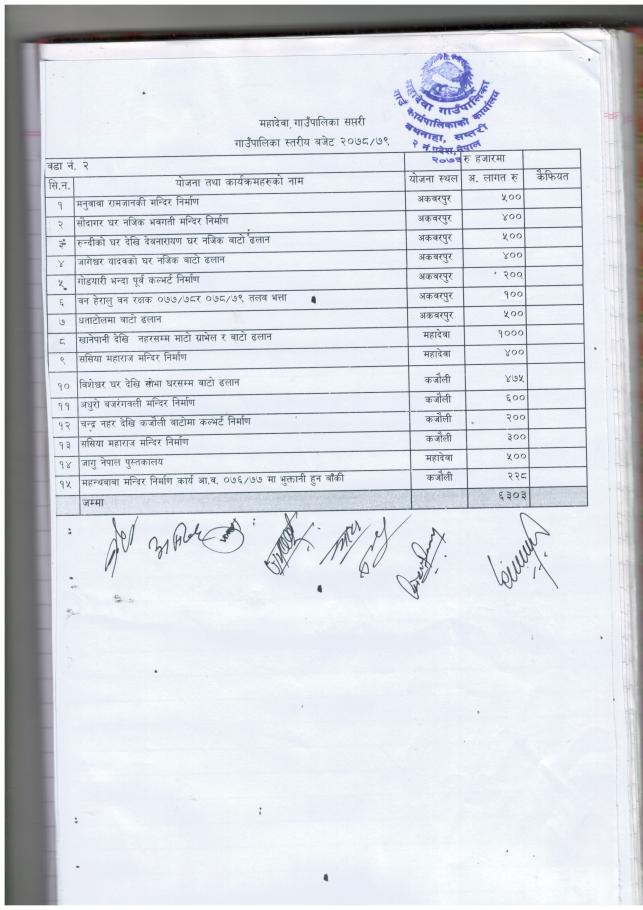 महादेवा गाउँपालिका
गाउँ कार्यपालिकाको कार्यालय
बथनाहा, सप्तरी
२ नं प्रदेश, नेपाल
महादेवा गाउँपालिका सप्तरी
गाउँपालिका स्तरीय बजेट २०७८/७९
वडा नं. २ रु हजारमा
सि.न. योजना तथा कार्यक्रमहरुको नाम योजना स्थल अ. लागत रु कैफियत
१ मनुवाबा रामजानकी मन्दिर निर्माण अकवरपुर ५००
२ सौदागर घर नजिक भवगती मन्दिर निर्माण अकवरपुर ४००
३ रुन्दीको घर देखि देवनारायण घर नजिक वाटो ढलान अकवरपुर ५००
४ जागेश्वर यादवको घर नजिक वाटो ढलान अकवरपुर ४००
५ गोडयारी भन्दा पूर्व कल्भर्ट निर्माण अकवरपुर २००
६ वन हेरालु वन रक्षक ०७७/७८र ०७८/७९ तलव भत्ता अकवरपुर १००
७ धताटोलमा वाटो ढलान अकवरपुर ५००
८ खानेपानी देखि नहरसम्म माटो ग्राभेल र वाटो ढलान महादेवा १०००
९ ससिया महाराज मन्दिर निर्माण महादेवा ४००
१० विशेश्वर घर देखि सोभा घरसम्म वाटो ढलान कजौली ४७५
११ अधुरो बजरंगवली मन्दिर निर्माण कजौली ६००
१२ चन्द्र नहर देखि कजौली वाटोमा कल्भर्ट निर्माण कजौली २००
१३ ससिया महाराज मन्दिर निर्माण कजौली ३००
१४ जागु नेपाल पुस्तकालय महादेवा ५००
१५ महन्थबाबा मन्दिर निर्माण कार्य आ.व. ०७६/७७ मा भुक्तानी हुन बाँकी कजौली २२८
जम्मा ६३०३